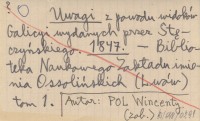 O Uwagi z powodu widoków
Galicyi wydanych przez Stę-
czyńskiego. 1847. – Biblio-
teka Naukowego Zakładu imie-
nia Ossolińskich (Lwów)
tom 1. Autor: POL Wincenty
(zob.)